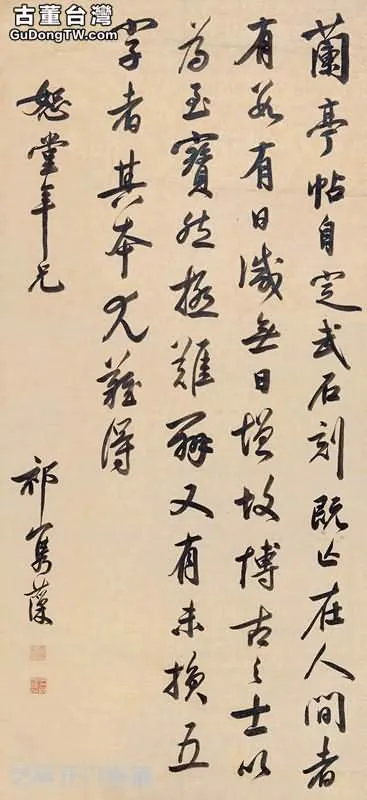 古董台灣
GuDongTW.com
蘭亭帖自定武石刻既亡在人間者
有數有日減無日增故博古之士以
為至寶然極難辨又有未損五
字者其本尤難得
恕堂年兄
祁寯藻